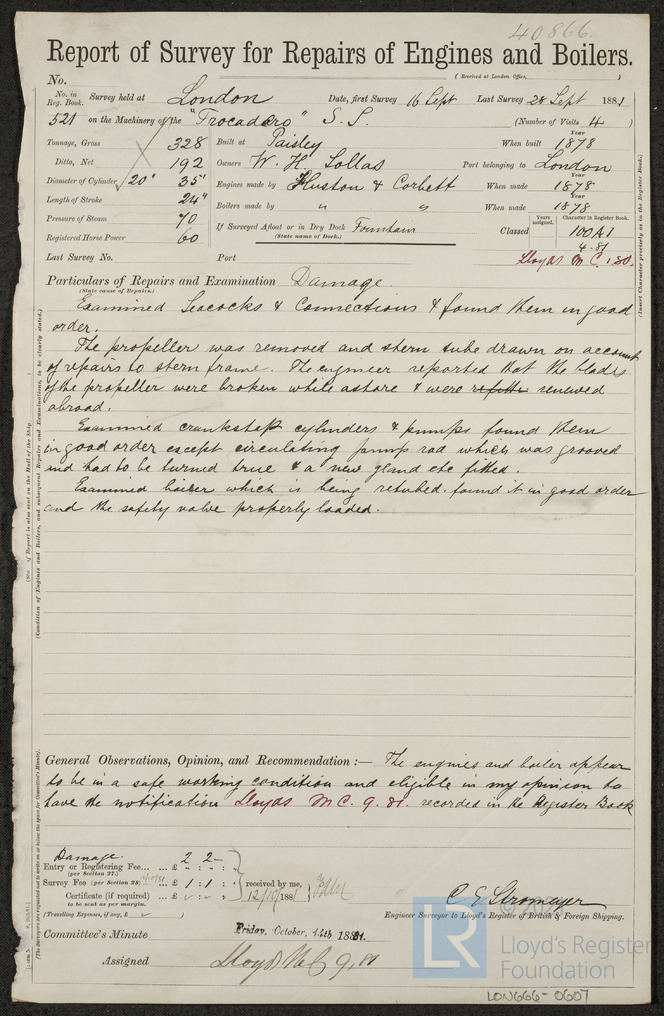 40866.
Report of Survey for Repairs of Engines and Boilers.
No. (Received at London Office, )
No. in Reg. Book. Survey held at London Date, first Survey 16 Sept Last Survey 28 Sept 1881
521 on the Machinery of the "Trocadero" S.S. (Number of Visits 4)
Tonnage, Gross 328 Built at Paisley When built Year 1878
Ditto, Net 192 Owners W. H. Sollas Port belonging to London
Diameter of Cylinder 20" 35" Engines made by Huston & Corbett When made Year 1878
Length of Stroke 24" Boilers made by " " When made Year 1878
Pressure of Steam 70 If Surveyed Afloat or in Dry Dock Fountain
(State name of Dock.)
Classed Years assigned. Character in Register Book. 100A1
4.81
Registered Horse Power 60
Last Survey No. Port Lloyds M C. 1.80.
Particulars of Repairs and Examination Damage
(State cause of Repairs.)
Examined Seacocks & Connections & found them in good
order.
The propeller was removed and stern tube drawn on account
of repairs to stern frame. The engineer reported that the blades
of the propeller were broken while ashore & were refitte renewed
abroad.
Examined crankshaft cylinders & pumps found them
in good order except circulating pump rod which was grooved
and had to be turned true & a new gland etc fitted.
Examined boiler which is being retubed. found it in good order
and the safety valve properly loaded.
General Observations, Opinion, and Recommendation :— The engines and boiler appear
to be in a safe working condition and eligible in my opinion to
have the notification Lloyds M C. 9. 81. recorded in the Register Book
Damage.
Entry or Registering Fee... ... £ 2 2 -
(per Section 27.)
Survey Fee (per Section 28) ... £ 1 : 1 :
received by me,
12/10/1881
Certificate (if required) ... £
to be sent as per margin.
(Travelling Expenses, if any, £ )
C E Stromeyer
Engineer Surveyor to Lloyd's Register of British & Foreign Shipping.
Committee's Minute Friday, October, 14th 1881.
Assigned Lloyds M C 9,81
(Insert Character precisely as in the Register Book.)
(Condition of Engines and Boilers, and subsequent Repairs and Examinations, to be clearly stated.)
(The Surveyors are requested not to write on or below the space for Committee's Minute).
LR
Lloyd's Register
Foundation
LON666-0607